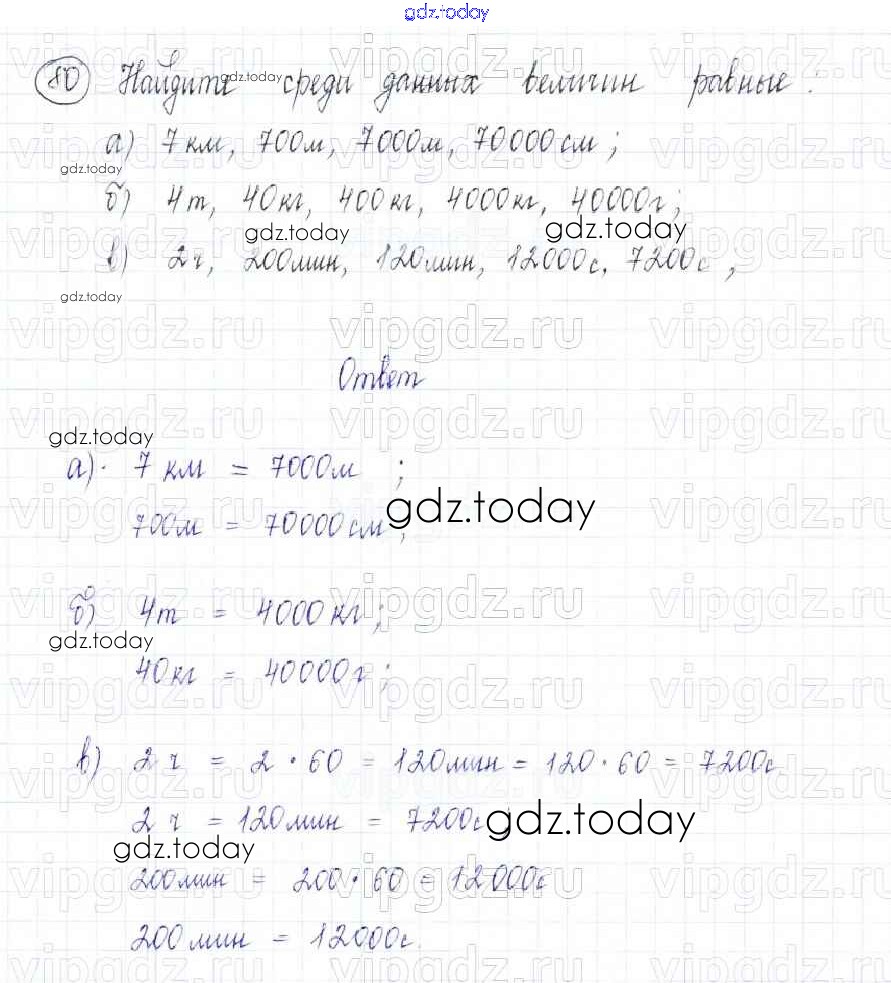 gdz.today
80 Найдите среди данных величин равные:
а) 7 км, 700м, 7000м, 70000 см;
б) 4т, 40кг, 400кг, 4000кг, 40000г;
в) 2ч, 200мин, 120мин, 12000с, 7200с,
Ответ
а) 7 км = 7000м ;
700м = 70000 см ;
б) 4т = 4000кг;
40кг = 40000г;
в) 2 ч = 2 · 60 = 120мин = 120 · 60 = 7200с
2 ч = 120мин = 7200с
200мин = 200 · 60 = 12000с
200 мин = 12000с.
gdz.today
gdz.today
gdz.today
gdz.today
gdz.today
gdz.today
gdz.today
gdz.today
gdz.today
gdz.today
vipgdz.ru